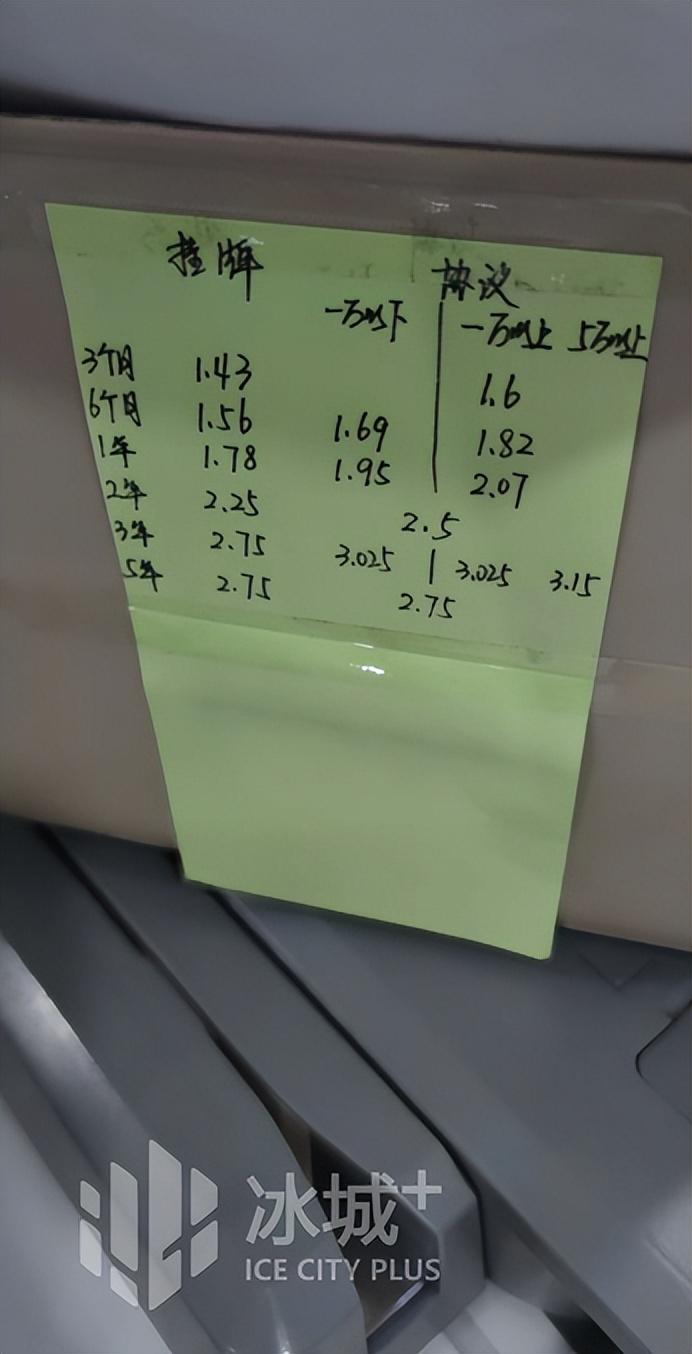 挂牌 协议
一万以下 一万以上 5万以上
3个月 1.43 1.6
6个月 1.56 1.69 1.82
1年 1.78 1.95 2.07
2年 2.25 2.5
3年 2.75 3.025 3.025 3.15
5年 2.75 2.75
冰城+
ICE CITY PLUS